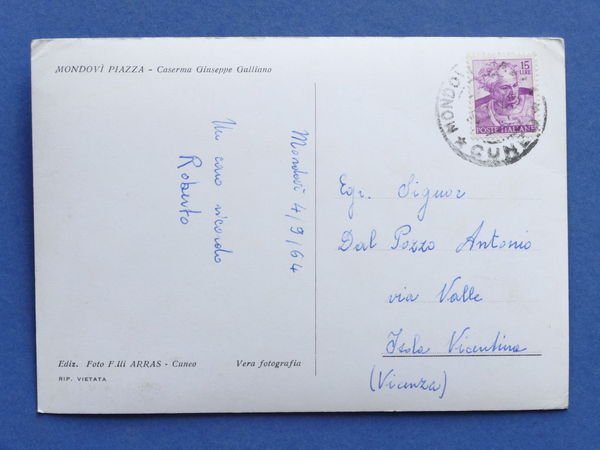 MONDOVÌ PIAZZA - Caserma Giuseppe Galliano
Mondovì 4/9/64
Un caro ricordo
Roberto
Ediz. Foto F.lli ARRAS - Cuneo
Vera fotografia
RIP. VIETATA
15
LIRE
POSTE ITALIANE
MONDOVÌ
CUNEO
Egr. Signor
Dal Pozzo Antonio
via Valle
Isola Vicentina
(Vicenza)